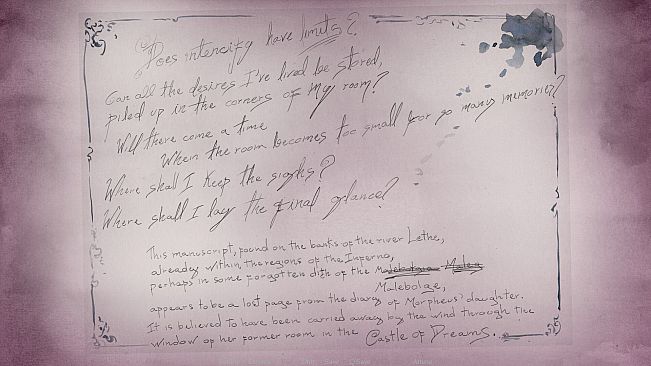 Does intencity have limits?
Can all the desires I've lived be stored,
piled up in the corners of my room?
Will there come a time
When the room becomes too small for so many memories?
Where shall I keep the sighs?
Where shall I lay the final glance?
This manuscript, found on the banks of the river Lethe,
already within the regions of the Inferno,
perhaps in some forgotten dith of the
Malebolge,
appears to be a lost page from the diary of Morpheus' daughter.
It is believed to have been carried away by the wind through the
window of her former room in the Castle of Dreams.